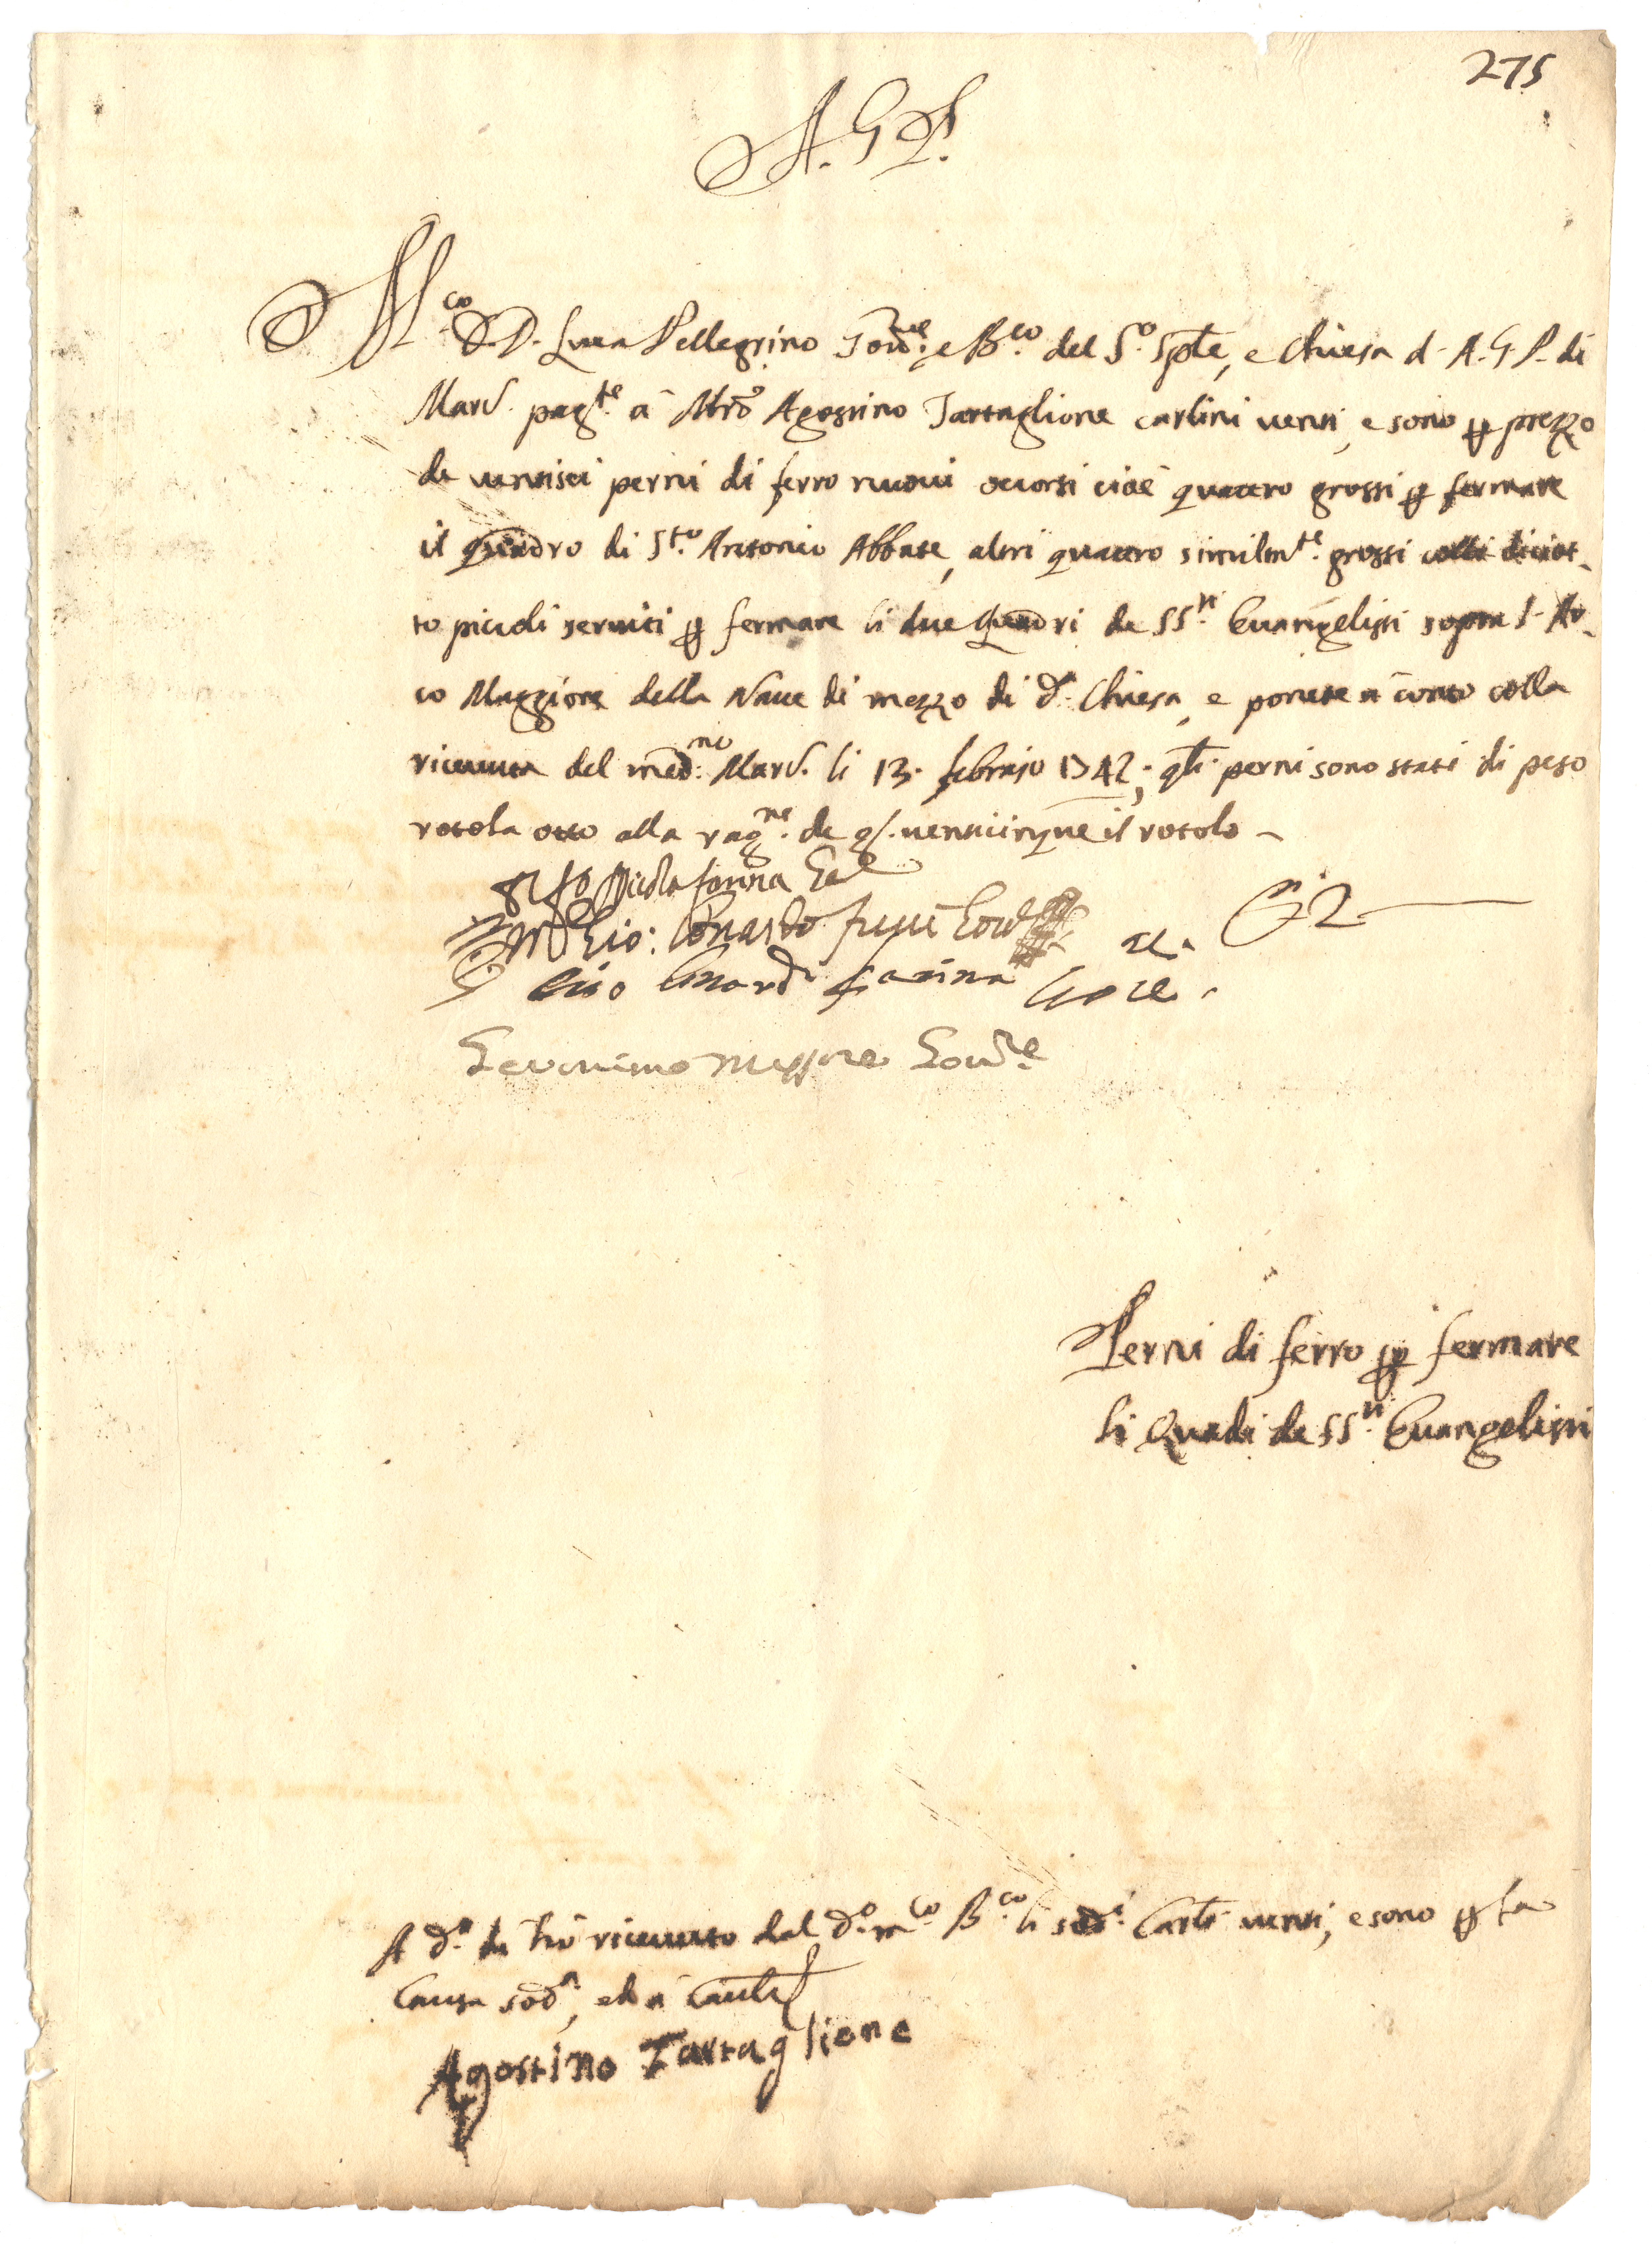 275
A. G. P.
M.co D. D. Luca Pellegrino Gov.re e B.co del S.o Sple, e Chiesa d. A. G. P. di
Marc. pag.te à Mrõ Agostino Tartaglione carlini venti, e sono p prezzo
de ventisei perni di ferro nuovi ocorsi cioè quattro grossi p fermare
il quadro di S.to Antonio Abbate, altri quattro similm.te grossi colli diciot-
to picioli serviti p fermare li due quadri de SS.ti Evangelisti sopra l'Ar-
co Maggiore della Nave di mezzo di d.a Chiesa, e ponete à conto colla
ricevuta del med.mo Marc. li 13. febraio 1742; qli perni sono stati di peso
rotola otto alla rag.ne de g. venticinque il rotolo -
Nicola farina
Gio: Lonardo
2
Gio Lonardo farina
Geronimo Gov.re
Perni di ferro p fermare
li Quadi de SS.ti Evangelisti
A d.o dì hò ricevuto dal d.o m.co B.co li sod.i Carli venti, e sono p la
Causa sod.a, ed à Caut.
Agostino Tartaglione